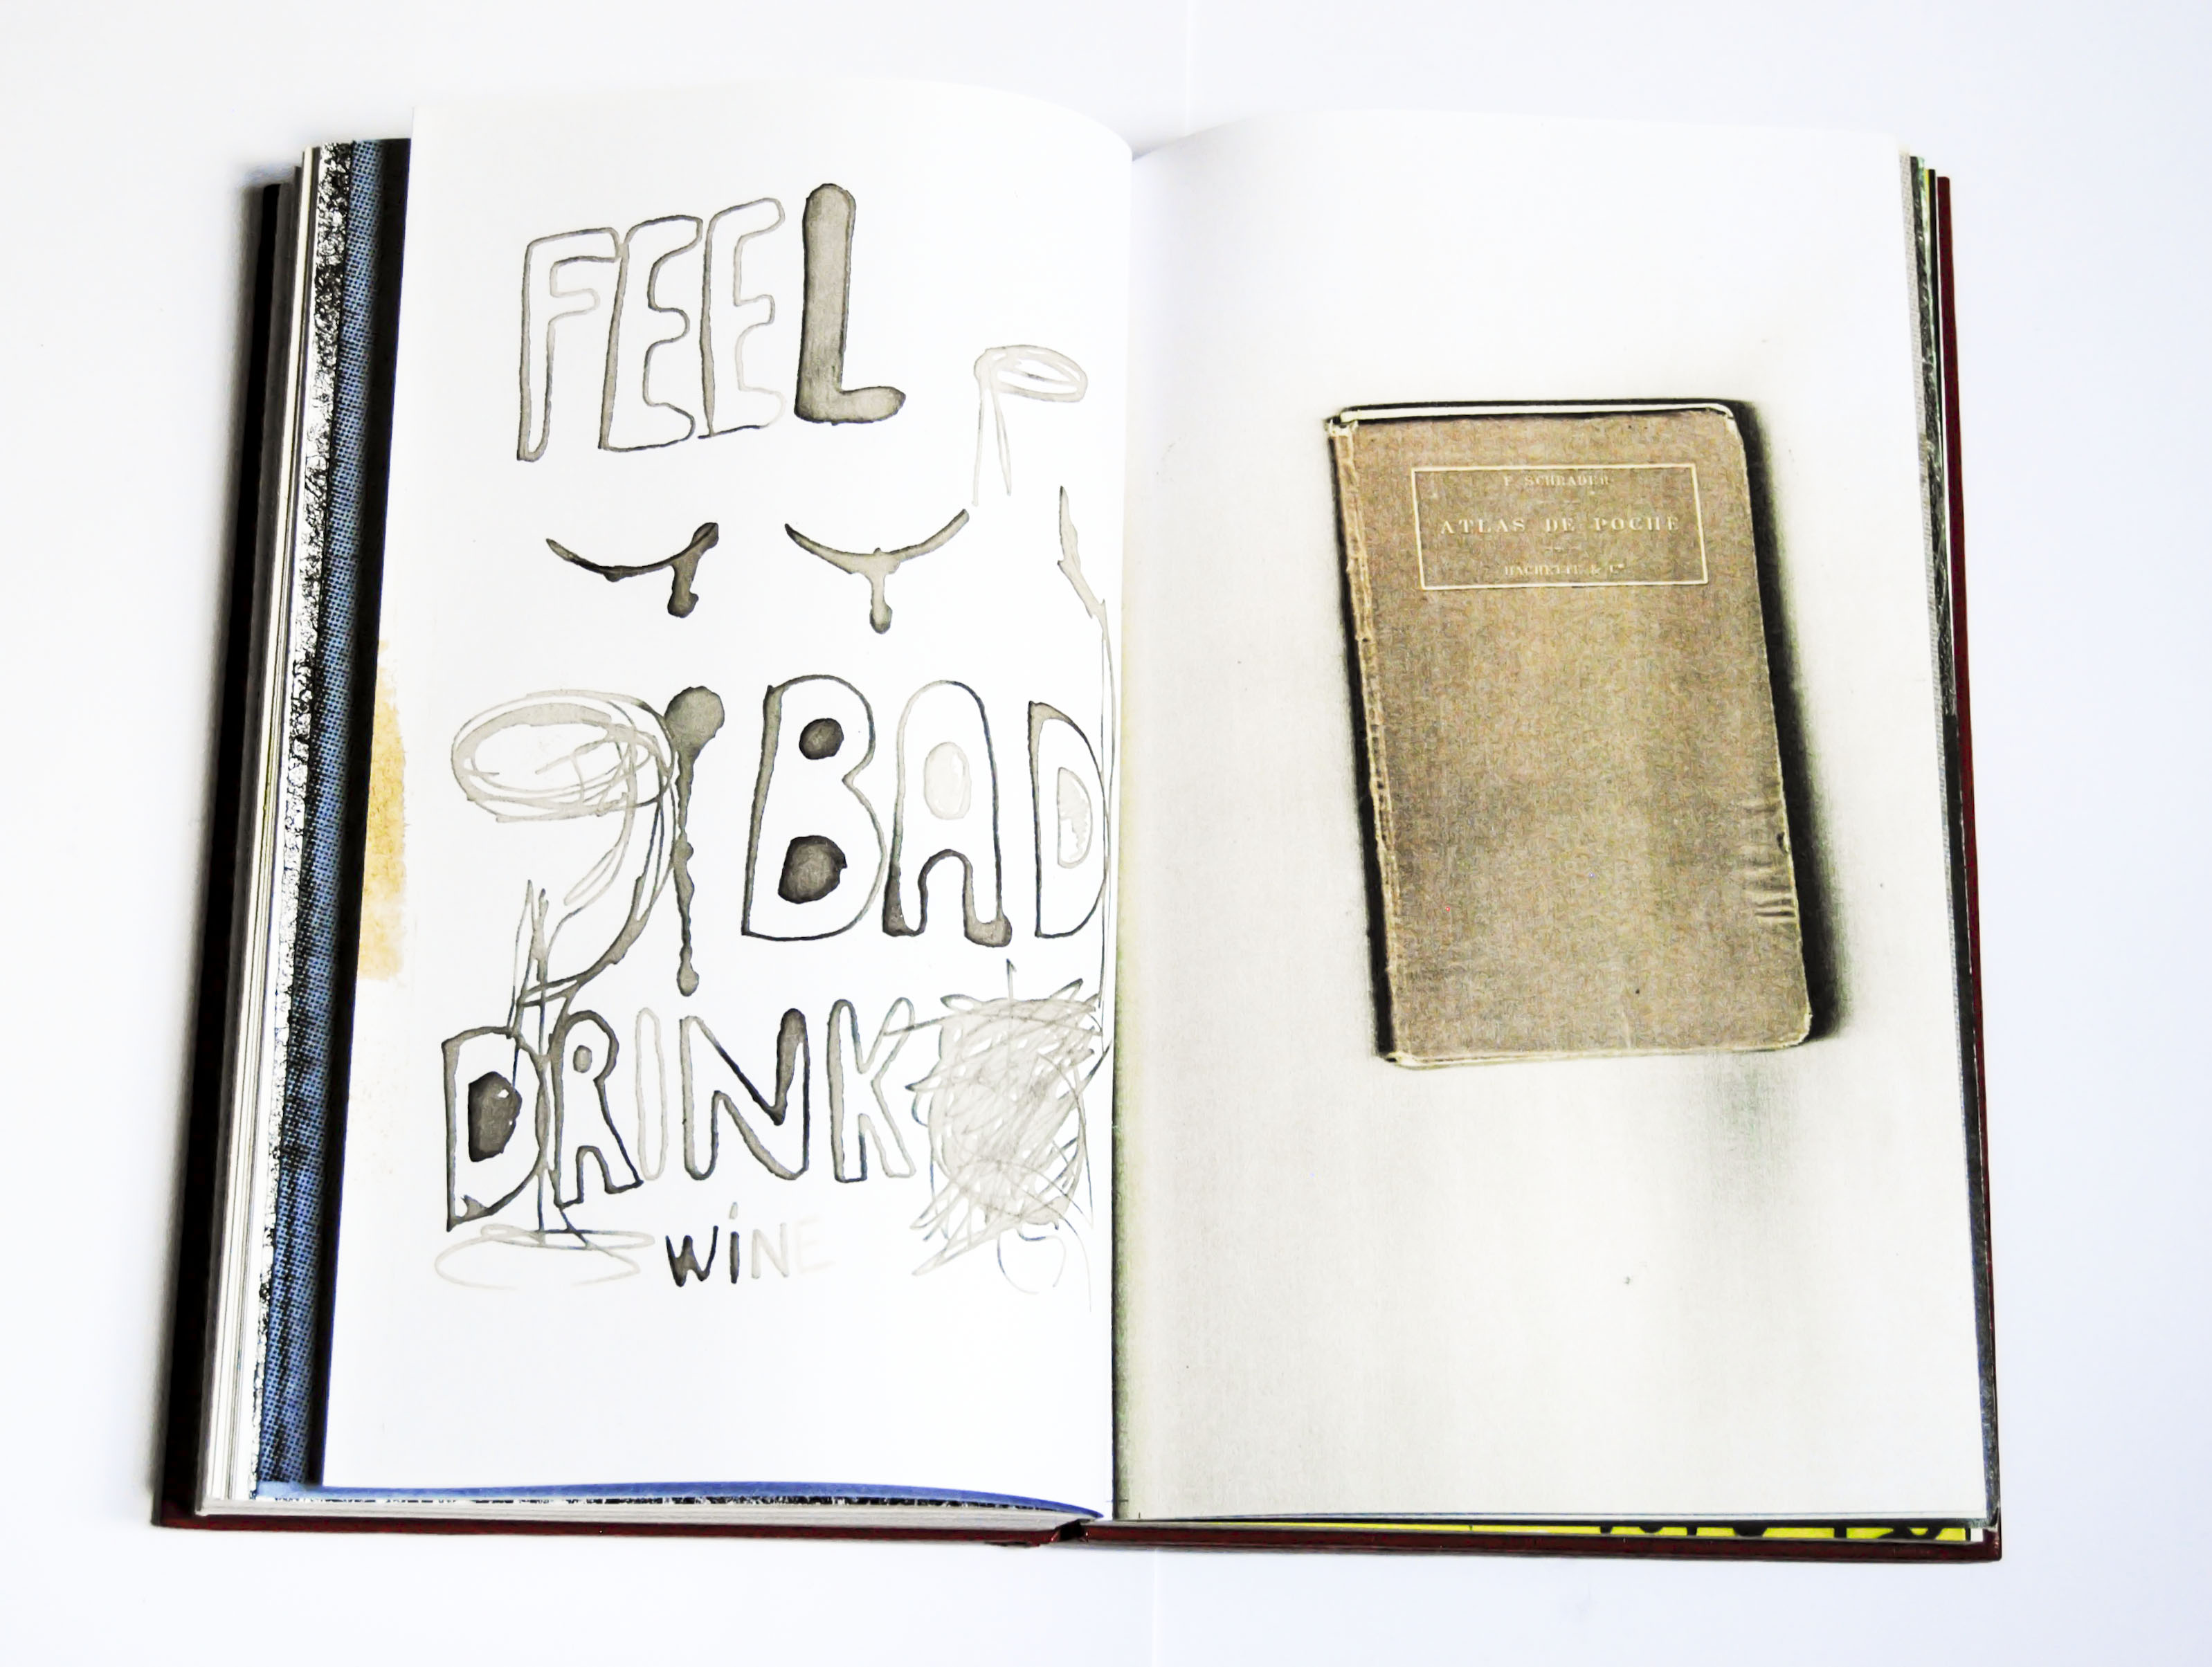 FEEL
BAD
DRINK
WiNE
F. SCHRADER
ATLAS DE POCHE
HACHETTE & Cie